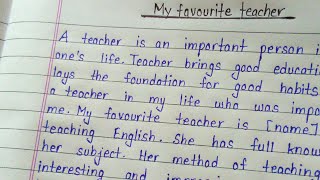 My favourite teacher
A teacher is an important person i
one's life. Teacher brings good educati
lays the foundation for good habits
a teacher in my life who was impo
me. My favourite teacher is [name]
teaching English. She has full know
her subject. Her method of teaching
interesting and